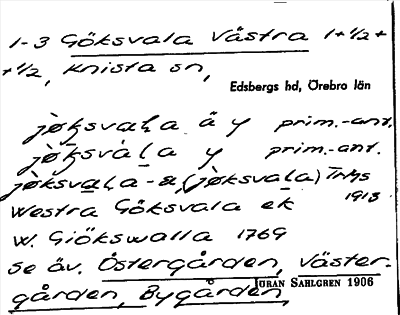 1-3 Göksvala Västra 1+1/2+
+1/2, Knista sn,
Edsbergs hd, Örebro län
jøksvaḷa ä y prim.-ant.
jøksvàḷa y prim.-ant.
jøksvaḷa - (jøksvala) Trhs
1913
Westra Göksvala ek
W. Giökswalla 1769
Se äv. Östergården, Väster-
gården, Bygården,
JÖRAN SAHLGREN 1906